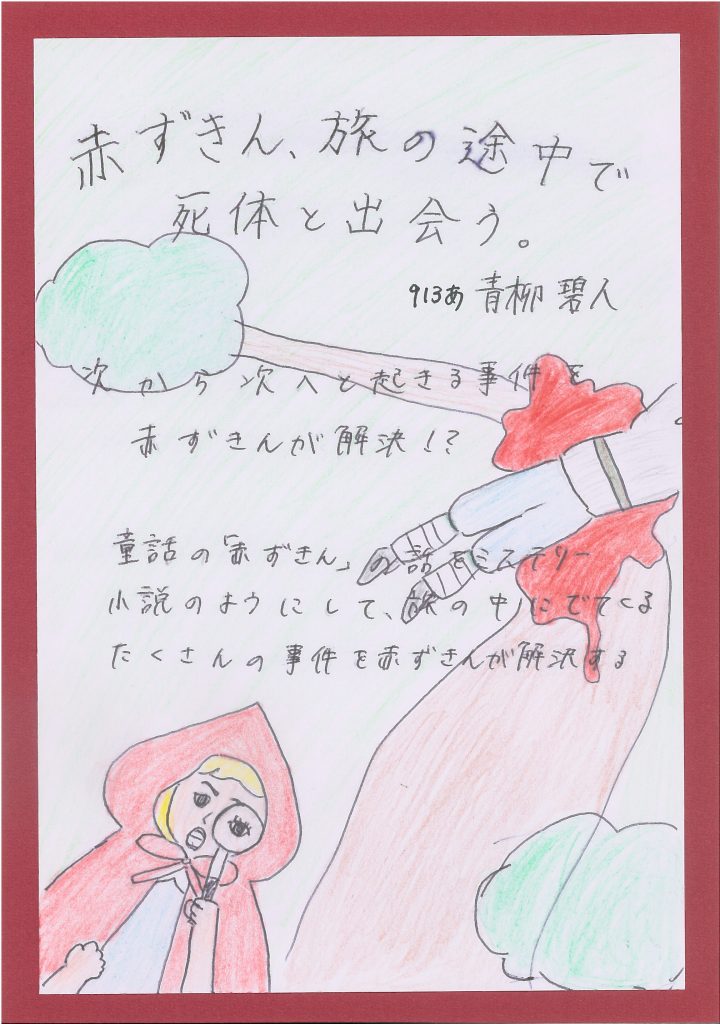 赤ずきん、旅の途中で
死体と出会う。
913あ 青柳碧人
次から次へと起きる事件を
赤ずきんが解決!?
童話の「赤ずきん」の話をミステリー
小説のようにして、旅の中にでてくる
たくさんの事件を赤ずきんが解決する